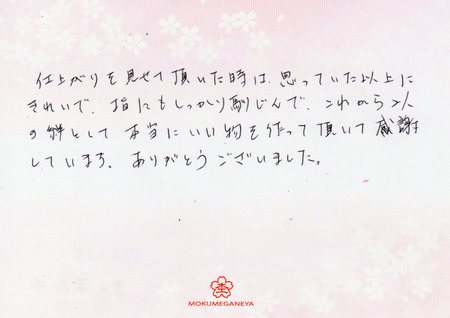 仕上がりを見せて頂いた時は、思っていた以上に
きれいで、指にもしっかり馴じんで、これから2人
の絆として本当にいい物を作って頂いて感謝
しています。ありがとうございました。
MOKUMEGANEYA